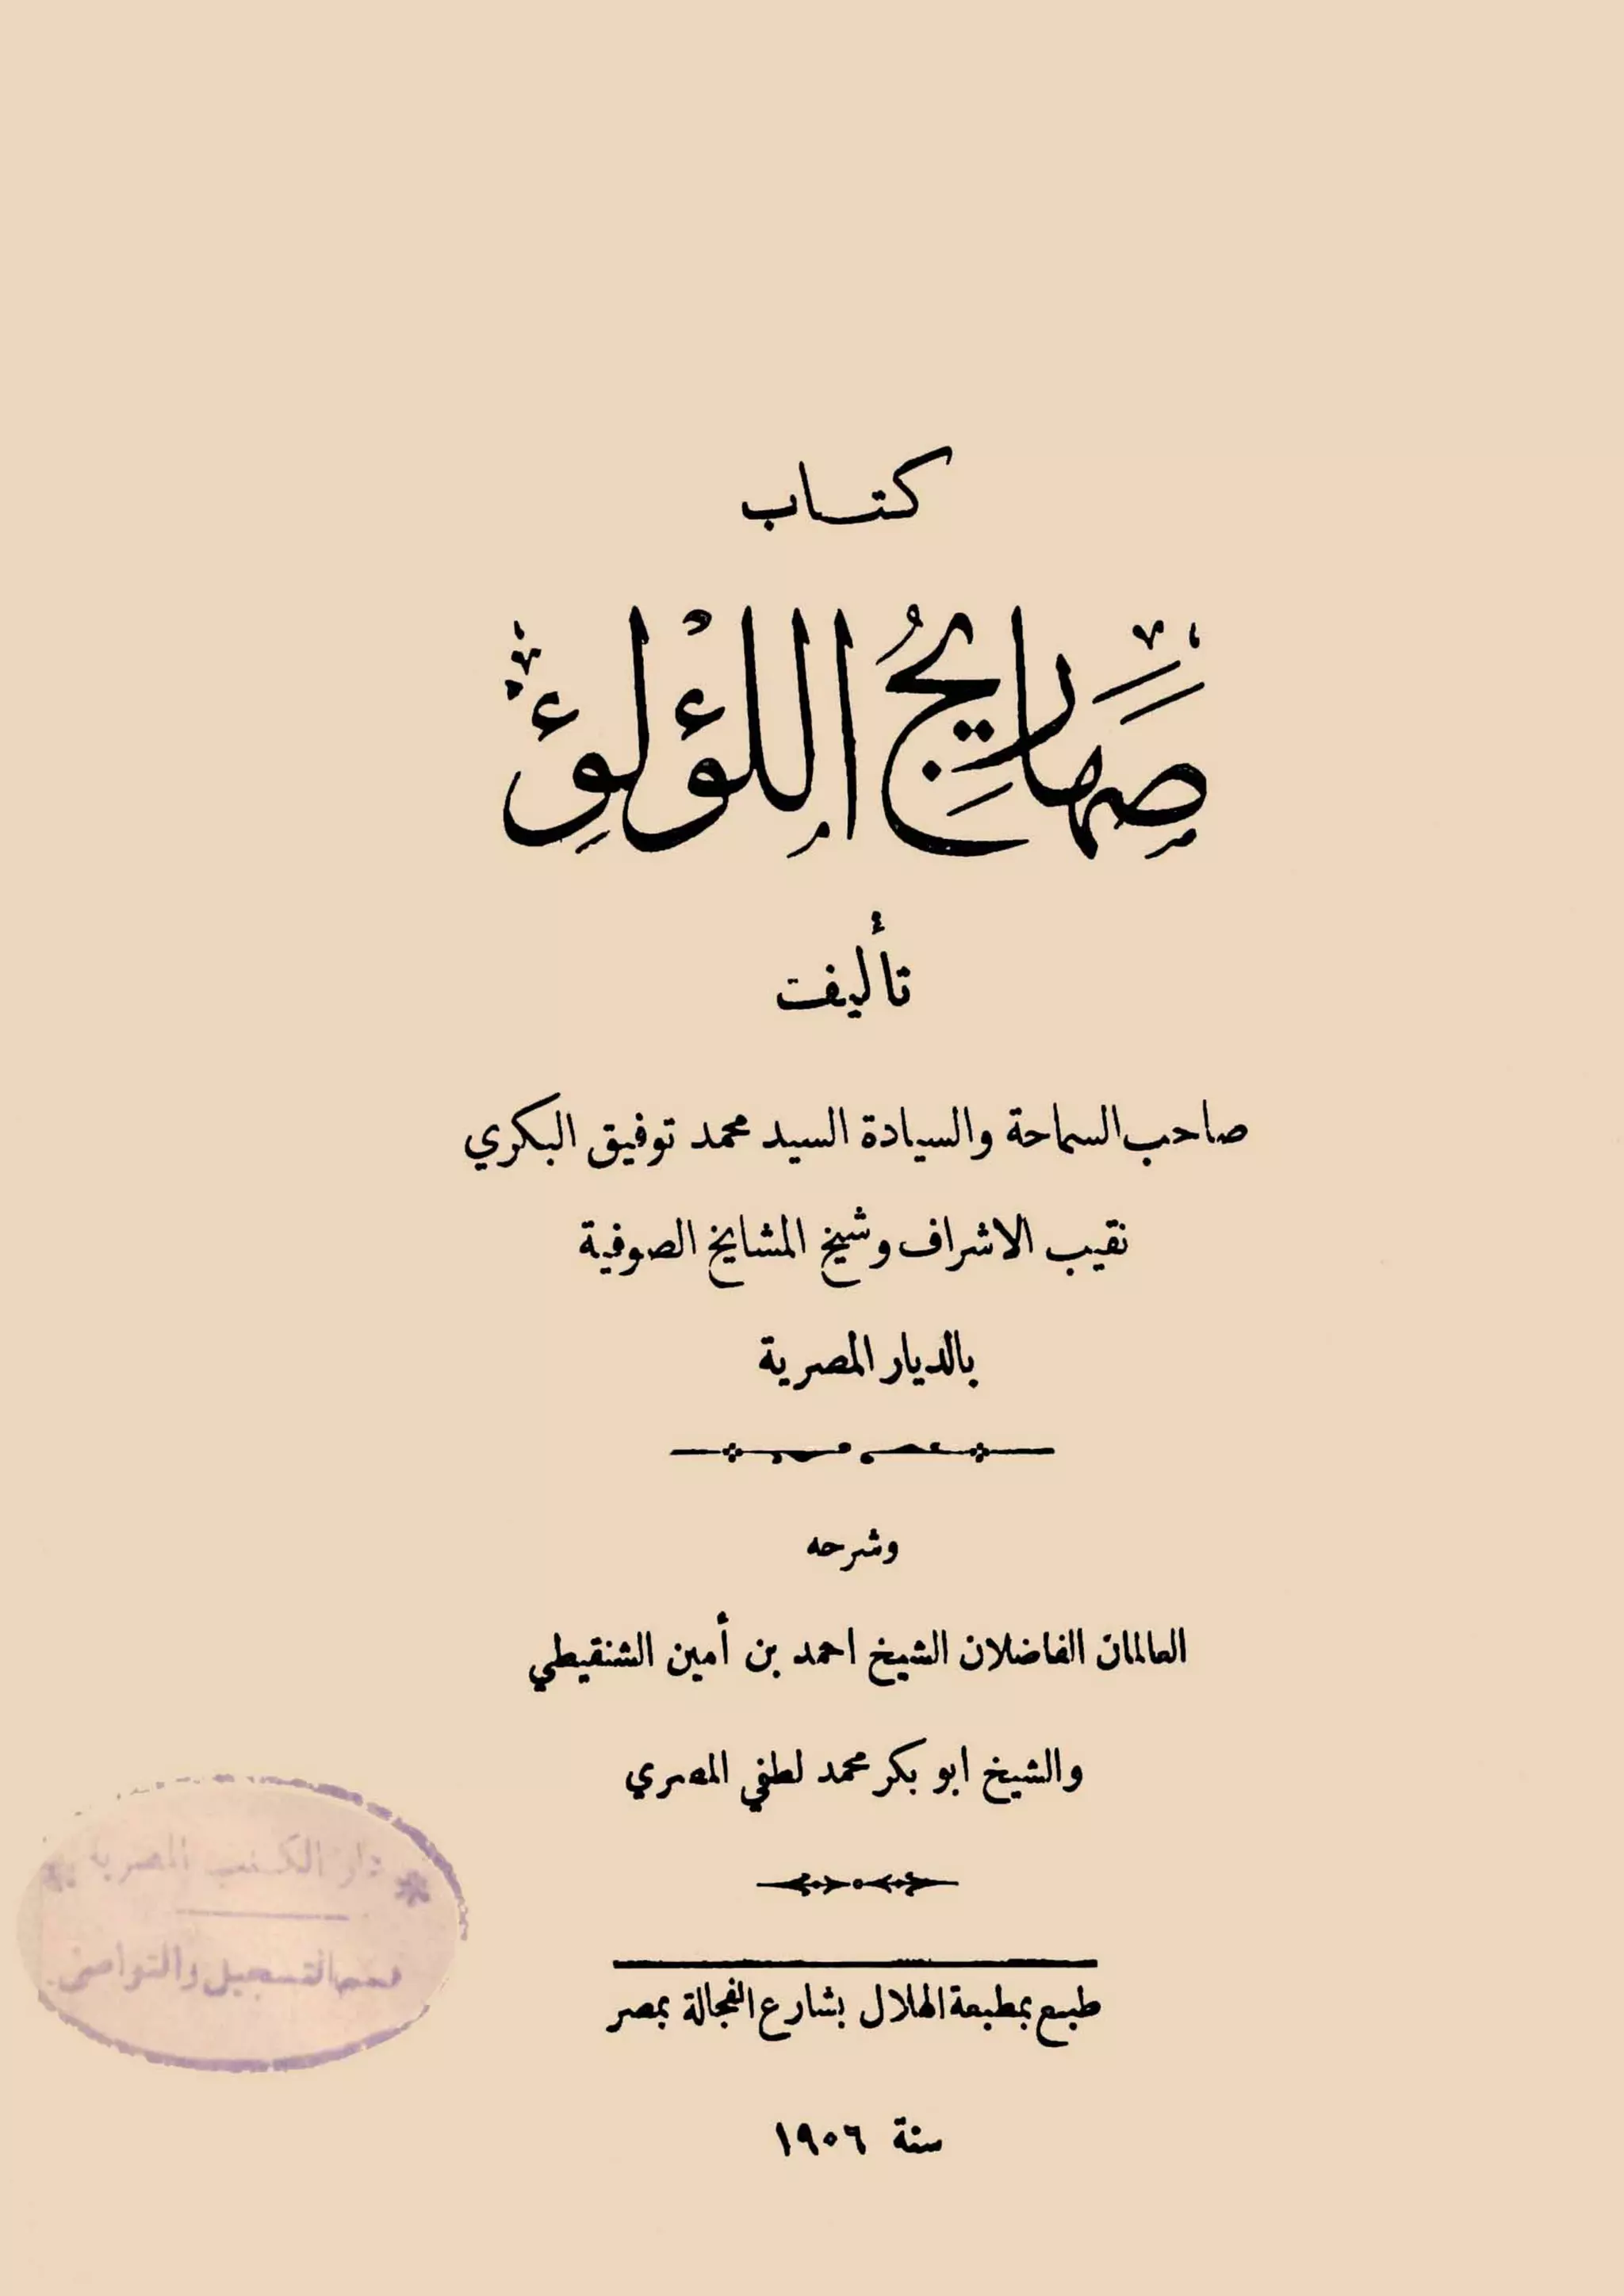 كتاب
صهاريج اللؤلؤ
تأليف
صاحب السماحة والسيادة السيد محمد توفيق البكري
نقيب الاشراف وشيخ المشايخ الصوفية
بالديار المصرية
وشرحه
العالمان الفاضلان الشيخ احمد بن أمين الشنقيطي
والشيخ ابو بكر محمد لطفي المصري
دار الكتب المصرية
قسم التسجيل والتواصى
طبع بمطبعة الهلال بشارع الفجالة بمصر
سنة ١٩٠٦